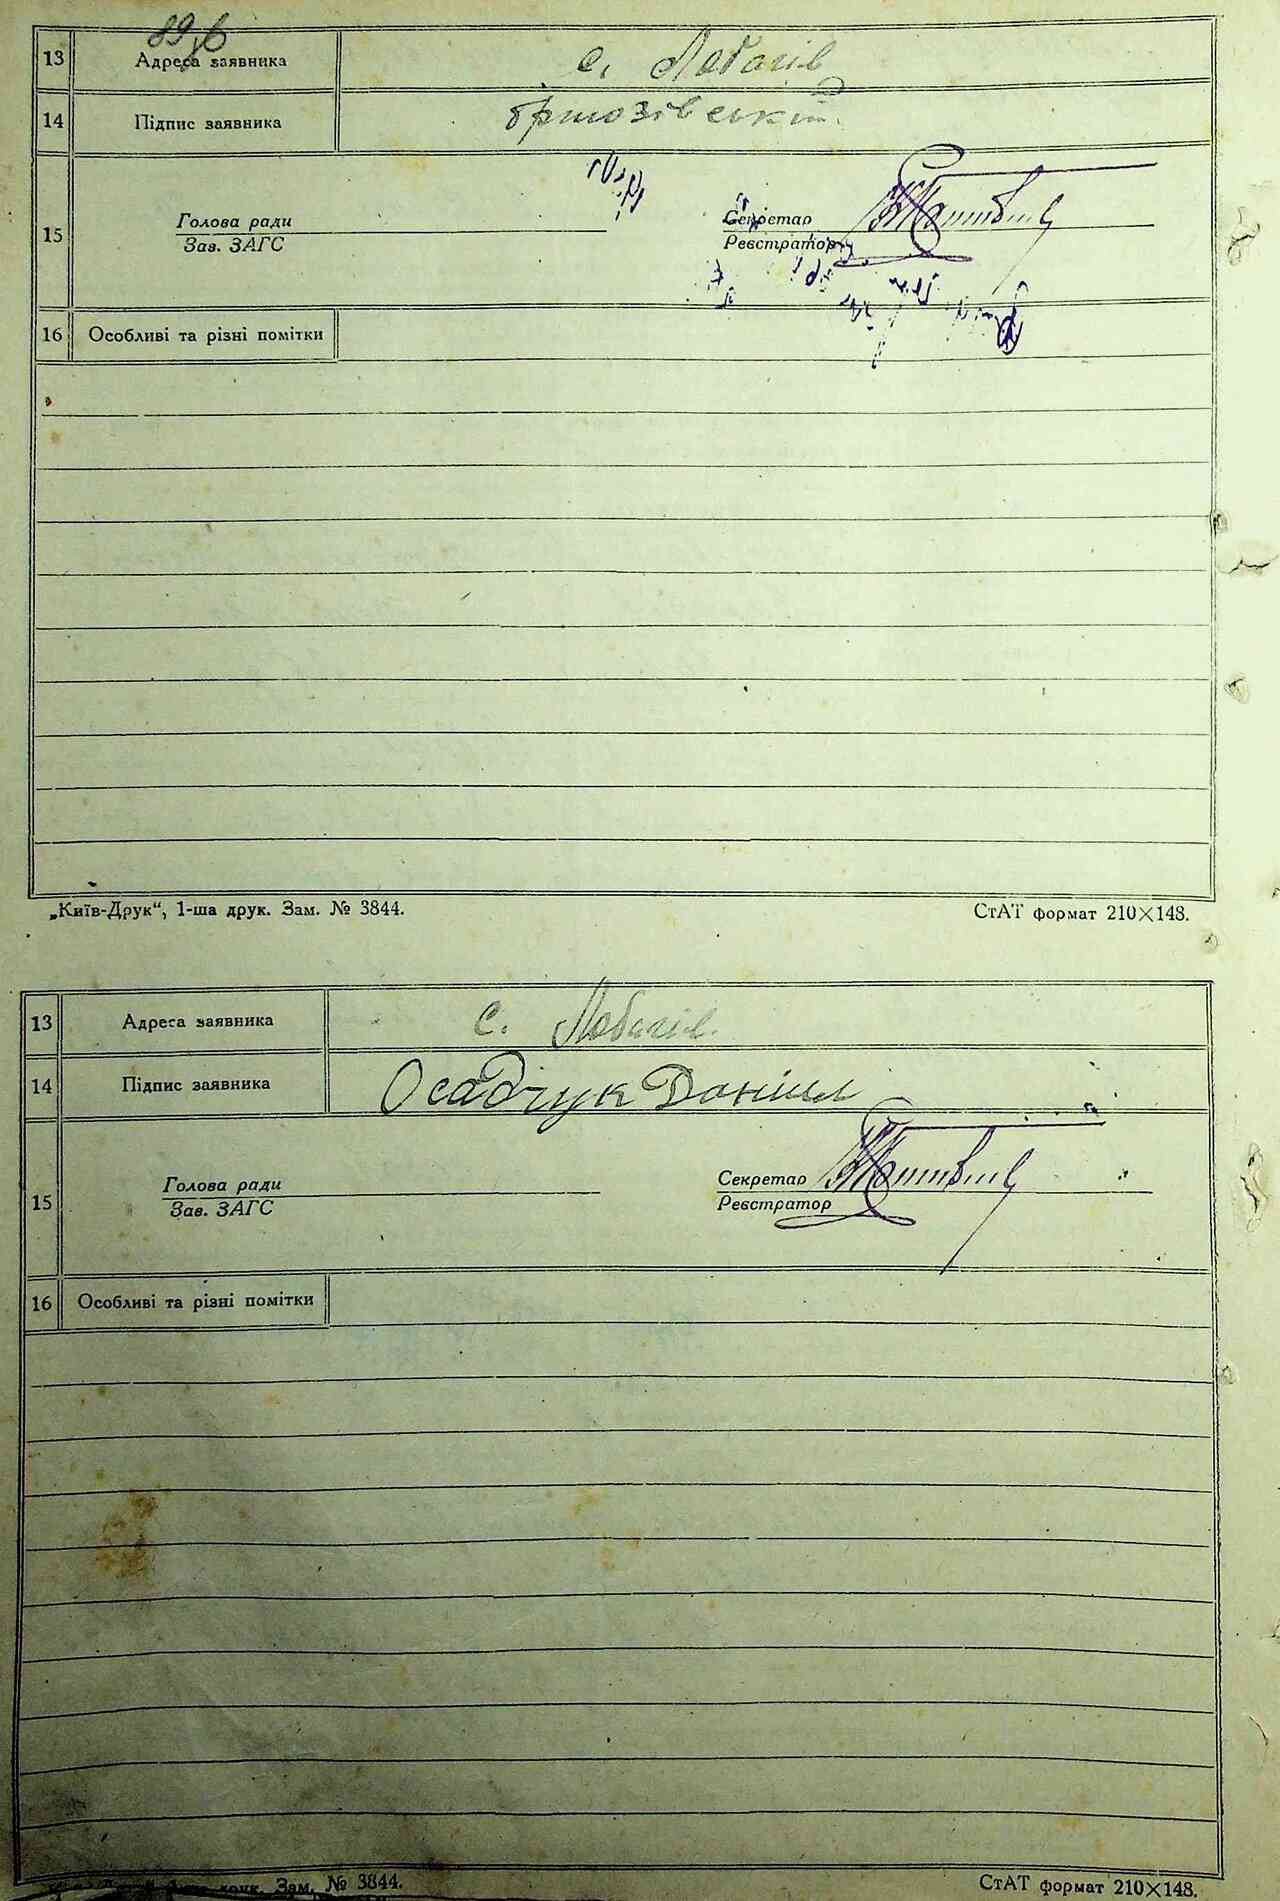 89 зв
13 Адреса заявника с. Лобачів
14 Підпис заявника
15 Голова ради Секретар
Зав. ЗАГС Реєстратор
16 Особливі та різні помітки
„Київ-Друк“, 1-ша друк. Зам. № 3844. СтАТ формат 210×148.
13 Адреса заявника с. Лобачів.
14 Підпис заявника Осадчук Даніил
15 Голова ради Секретар
Зав. ЗАГС Реєстратор
16 Особливі та різні помітки
друк. Зам. № 3844. СтАТ формат 210×148.